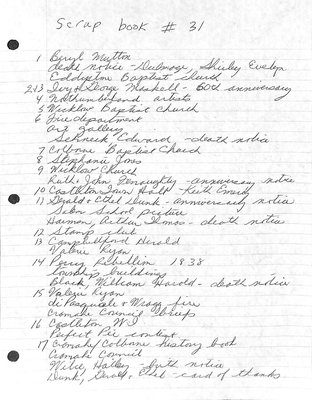 Scrap book # 31
1 Beryl Mutton
death notice - Dulmage, Shirley Evelyn
Eddystone Baptist church
2+3 Ivy + George Maskell - 60th anniversary
4 Northumberland artists
5 Wicklow Baptist Church
6 Fire department
art gallery
Edward - death notice
7 Colborne Baptist Church
8 Stephanie Jones
9 Wicklow Church
Ruth + John - anniversary notice
10 Castleton Town Hall - Keith
11 Gerald + Ethel Dunk - anniversary notice
Salem School picture
Harmon, Arthur - death notice
12 Stamp club
13 Campbellford Herald
Valerie Ryan
14 Percy Rebellion 1838
township buildings
Black, William Harold - death notice
15 Valerie Ryan
diPasquale + Wragg fire
Cramahe Council
16 Castleton W I
Perfect Pie contest
17 Cramahe/Colborne history book
Cramahe Council
Hailey birth notice
Dunk, Gerald + Ethel - card of thanks